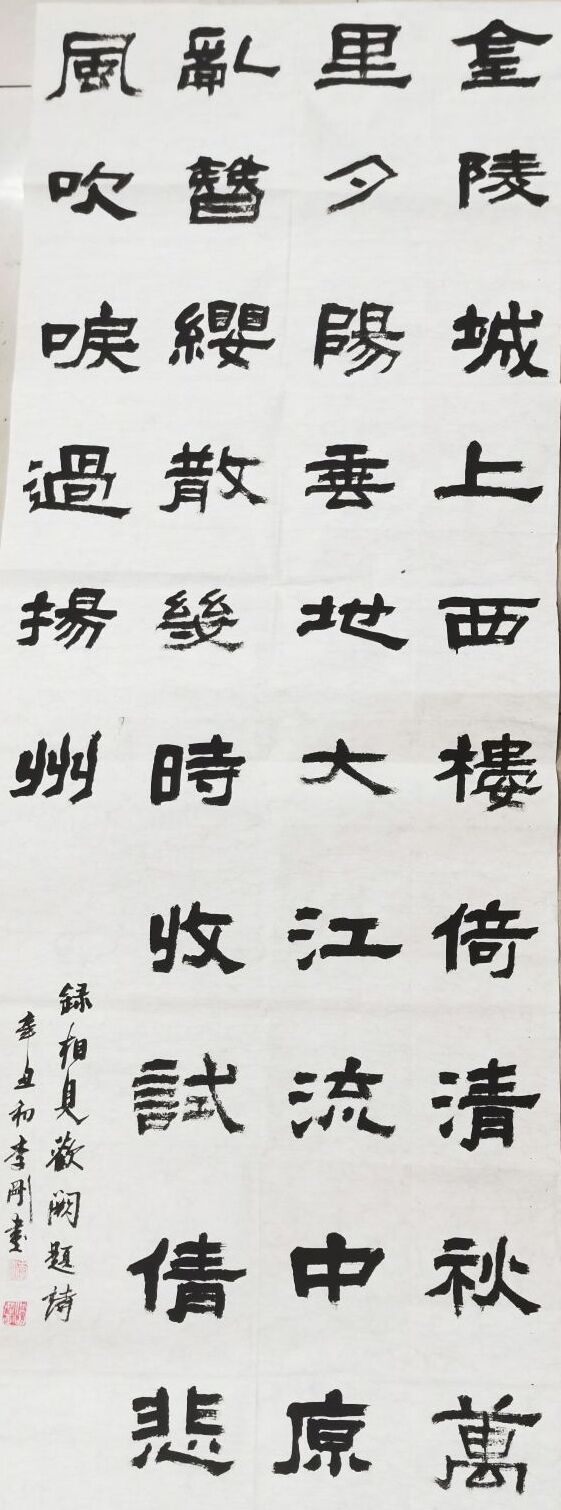 金陵城上西樓倚清秋萬
里夕陽垂地大江流中原
亂簪纓散幾時收試倩悲
風吹唳過揚州
録相見歡闕題詩
辛丑初李刚書